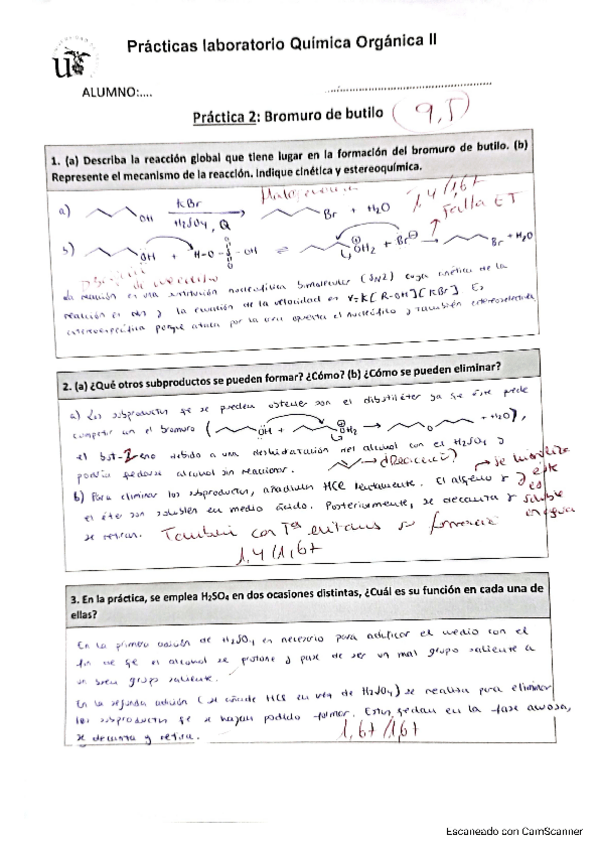 Prácticas laboratorio Química Orgánica II
ALUMNO:....
Práctica 2: Bromuro de butilo (9,5)
1. (a) Describa la reacción global que tiene lugar en la formación del bromuro de butilo. (b)
Represente el mecanismo de la reacción. Indique cinética y estereoquímica.
a) OH KBr H₂SO₄, Q Br + H₂O
1,4/1,67
Falla ET
b) OH + H-O-S-OH ⇌ OH₂ + Br⊖ → Br + H₂O
La reacción es una sustitución nucleofílica bimolecular (SN2) cuya cinética de la
reacción es y la ecuación de la velocidad es v=k[R-OH][KBr]. Es
estereoespecífica porque ataca por la cara opuesta el nucleófilo y también estereoselectiva
2. (a) ¿Qué otros subproductos se pueden formar? ¿Cómo? (b) ¿Cómo se pueden eliminar?
a) Los subproductos que se pueden obtener son el dibutiléter ya que éste puede
competir con el bromuro ( OH + OH₂ → O + H₂O),
el but-2-eno debido a una deshidratación del alcohol con el H₂SO₄ y
podría quedarse alcohol sin reaccionar.
b) Para eliminar los subproductos, añadimos HCl lentamente. El alqueno y
el éter son solubles en medio ácido. Posteriormente, se decanta y
se retiran. También con Tª evitamos su formación
soluble
en agua
1,4/1,67
3. En la práctica, se emplea H₂SO₄ en dos ocasiones distintas, ¿Cuál es su función en cada una de
ellas?
En la primera adición de H₂SO₄ es necesario para acidificar el medio con el
fin de que el alcohol se protone y pase de ser un mal grupo saliente a
un buen grupo saliente.
En la segunda adición (se añade HCl en vez de H₂SO₄) se realiza para eliminar
los subproductos que se hayan podido formar. Estos quedan en la fase acuosa,
se decanta y retira.
1,67/1,67
Escaneado con CamScanner